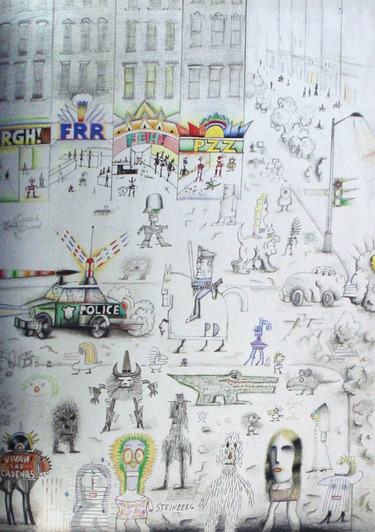 RGH!
FRR
FEH!
PZZ
POLICE
PD
VIVAN
LAS
CADENAS
STEINBERG